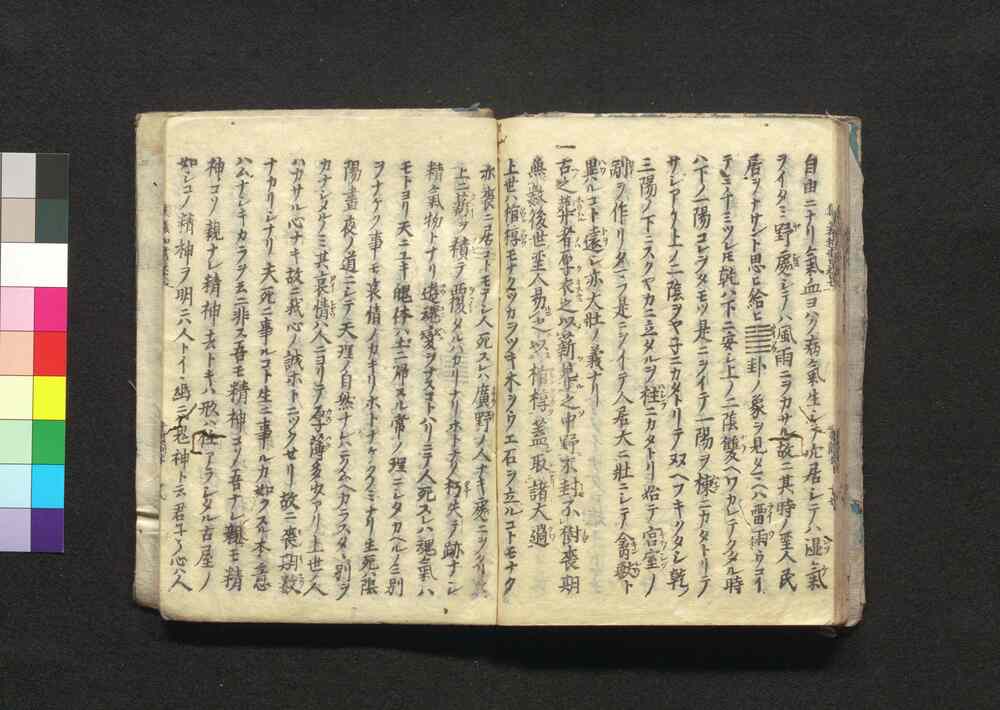 自由ニナリ氣血ヨハリ病氣生シ又穴居シテハ湿氣
ヲイタミ野處シテハ風雨ニヲカサル故ニ其時ノ聖人民
居ヲナサント思ヒ給ヒ䷡卦ノ象ヲ見タマヘハ雷雨ウコイ
テミチミツレモ乾ハ下ニ安シ上ノ二陰雙ヘワカレテクタル時
ハ下ノ一陽コレヲタモツ是ニツイテ一陽ヲ棟ニカタトリテ
サシアケ上ノ二陰ヲヤ子ニカタトリテ双ヘフキクタシ乾
三陽ノ下ニスクヤカニ立タルヲ柱ニカタトリ始テ宮室ノ
制ヲ作リ是ニツイテ人居大ニ壮ニシテ禽獣ト
異ルコト遠シ亦大壮ノ義ナリ
一古之葬者厚衣之以薪葬之中野不封不樹喪期
無數後世聖人易之以棺椁蓋取諸大過
上世ハ棺椁モナクツカヲツキ木ヲウエ石ヲ立ルコトモナク
亦喪ニ居コトモナシ人死スレハ廣野ノ人ナキ處ニ
上ニ薪ヲ積テ覆タルハカリナリホトナク朽失テ跡ナシ
精氣物トナリ遊魂変ヲナスコトハリニテ人死スレハ魂氣ハ
モトヨリ天ニユキ魄体ハ土ニ帰スル常ノ理ニシタカヘリ別
ヲナケクノ事モ哀情ノカキリホトナケクミナリ生死ハ陰
陽晝夜ノ道ニシテ天理ノ自然ナレハニクムヘカラスタヽ別ヲ
カナシムノミ其哀情ハ人ニヨリテ厚薄多少アリ上世ノ人
ハカサル心ナキ故ニ我心ノ誠ホトニツクセリ故ニ喪期数
ナカリシナリ夫死ニ事ルコト生ニ事ルカ如クスル本意
ハムナシキカラヲ云ニ非ス吾モ精神コソ吾ナレ親モ精
神コソ親ナレ精神去トキハ形ハ アラシタル古屋ノ
如シコノ精神ヲ明ニハ人トイヒ幽ニハ鬼神ト云君子ノ心ハ人